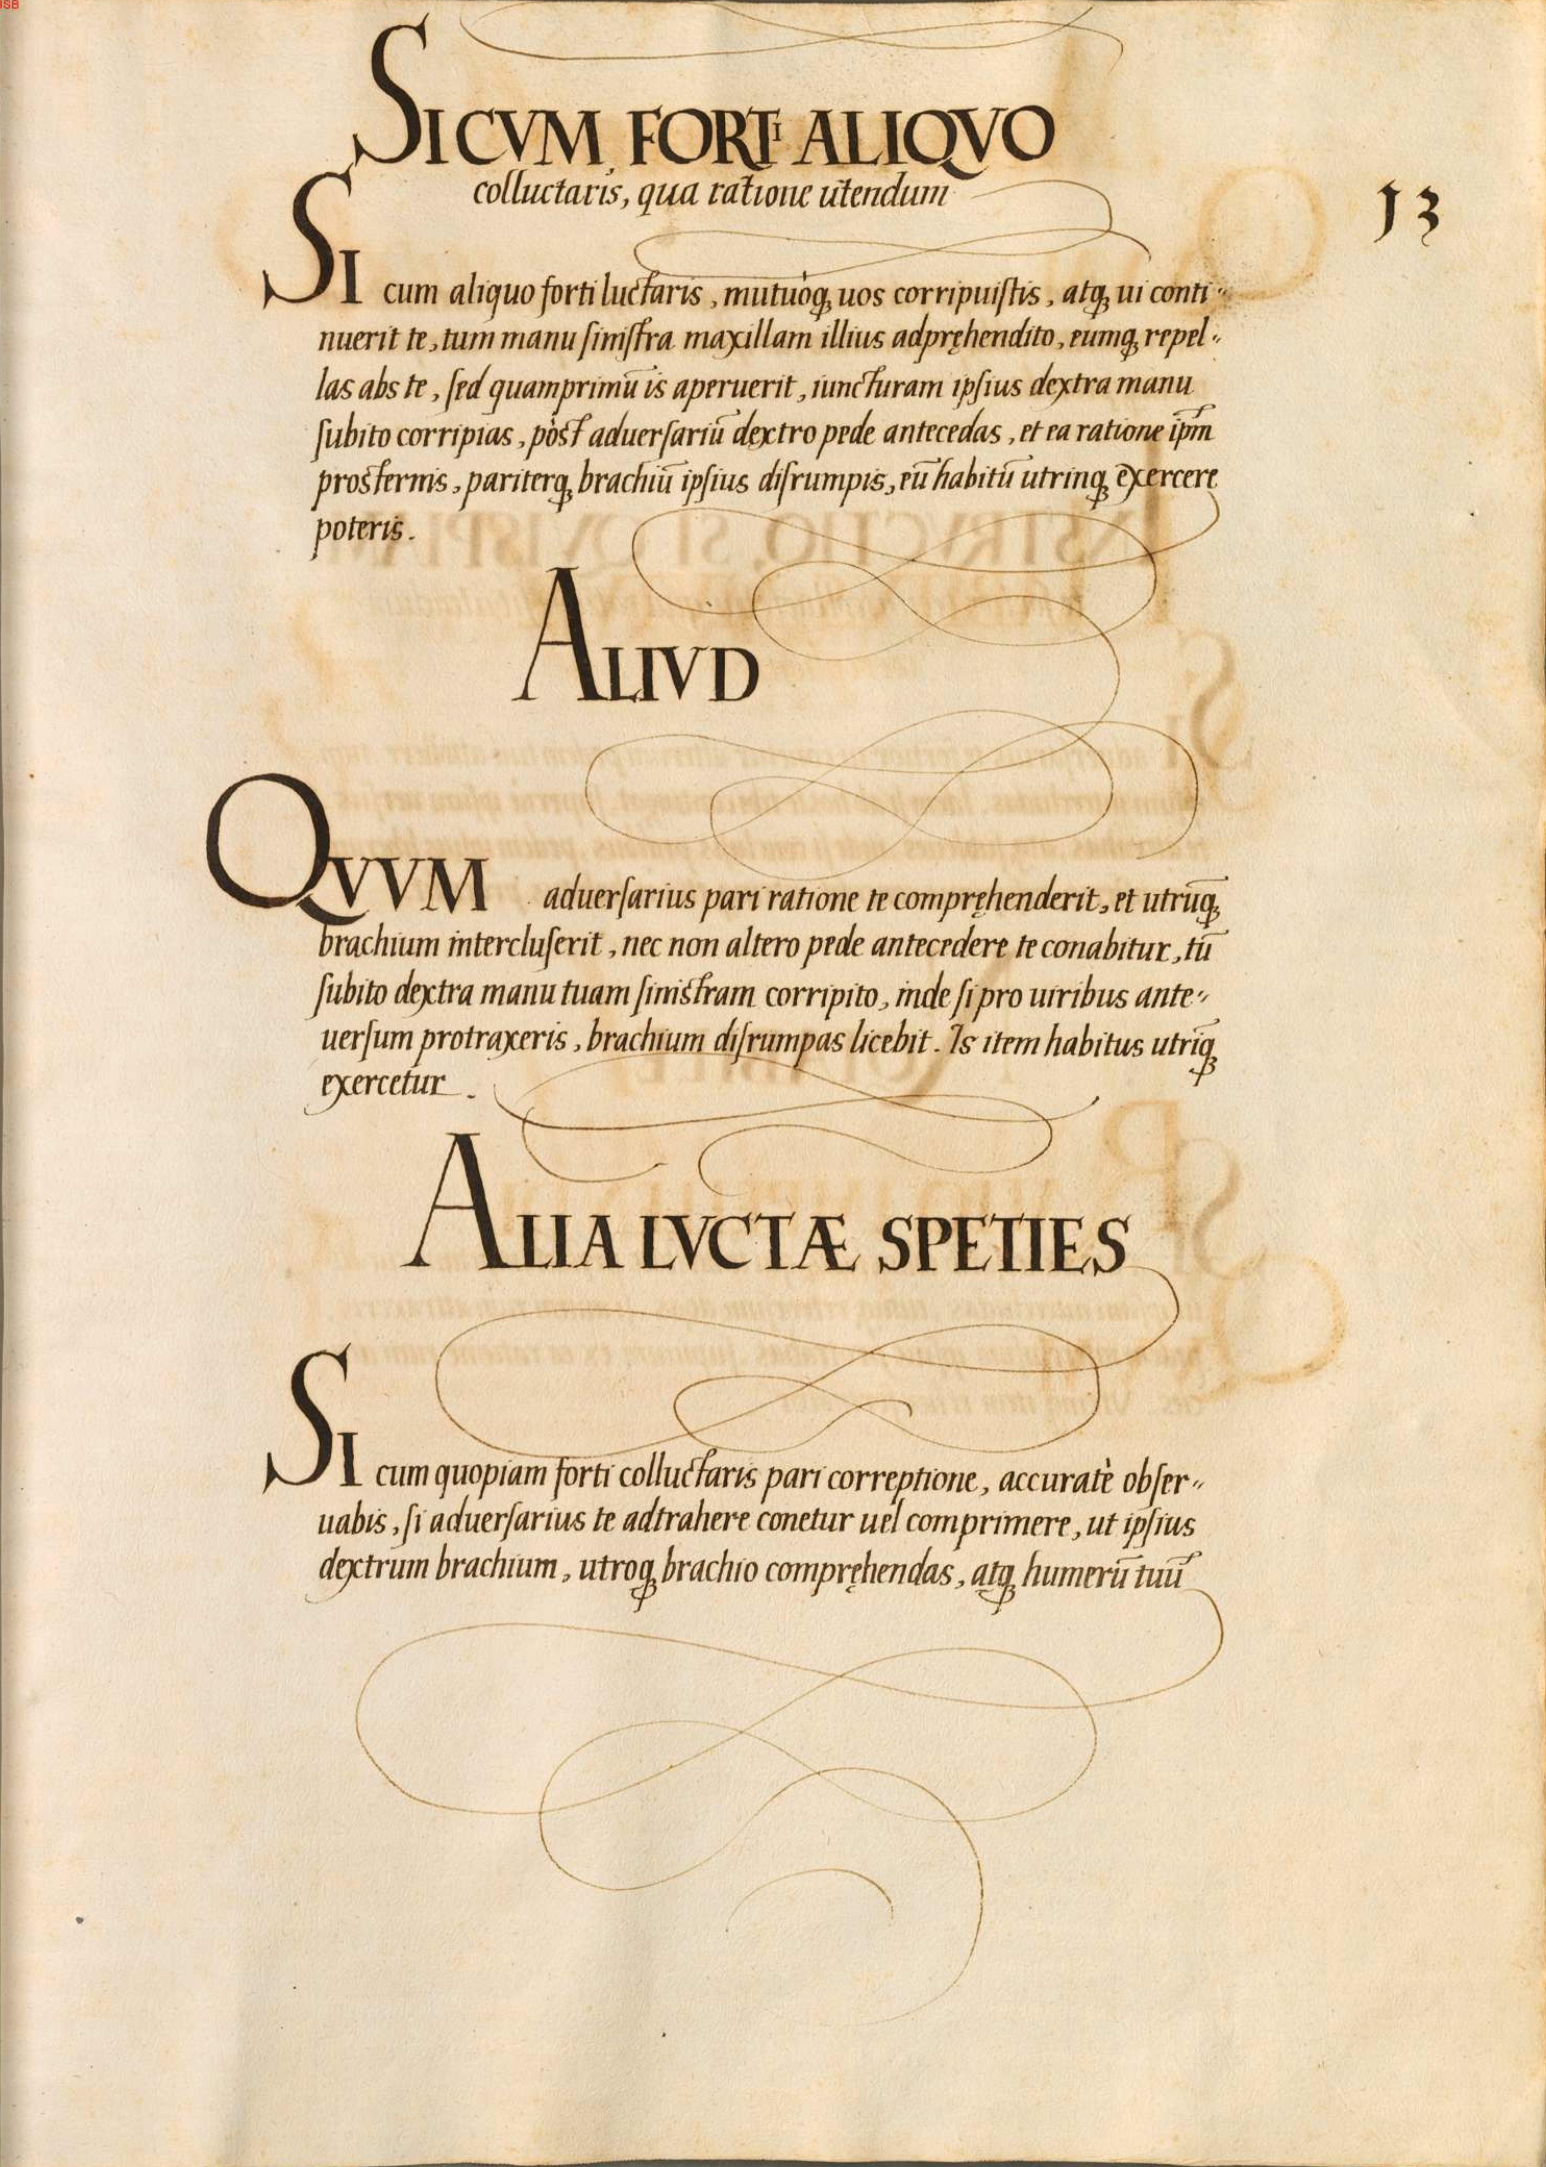 SI CVM FORTI ALIQVO
colluctaris, qua ratione utendum
13
SI cum aliquo forti luctaris, mutuòq; uos corripuiſtis, atq; ui conti-
nuerit te, tum manu ſiniſtra maxillam illius adpręhendito, eumq; repel-
las abs te, ſed quamprimū is aperuerit, iuncturam ipſius dextra manu
ſubito corripias, pòst aduerſariū dextro pede antecedas, et ea ratione ip̄m
prosternis, pariterq; brachiū ipſius diſrumpis, eū habitū utrinq; exercere
poteris.
ALIVD
QVVM aduerſarius pari ratione te compręhenderit, et utrūq;
brachium intercluſerit, nec non altero pede antecedere te conabitur, tū
ſubito dextra manu tuam ſinistram corripito, inde ſi pro uiribus ante-
uerſum protraxeris, brachium diſrumpas licebit. Is item habitus utrīq;
exercetur.
ALIA LVCTÆ SPETIES
SI cum quopiam forti colluctaris pari correptione, accuratè obſer-
uabis, ſi aduerſarius te adtrahere conetur uel comprimere, ut ipſius
dextrum brachium, utroq; brachio compręhendas, atq; humerū tuū